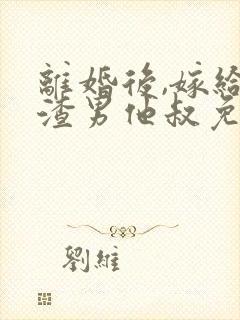 離婚後,嫁給
渣男他叔免
劉維